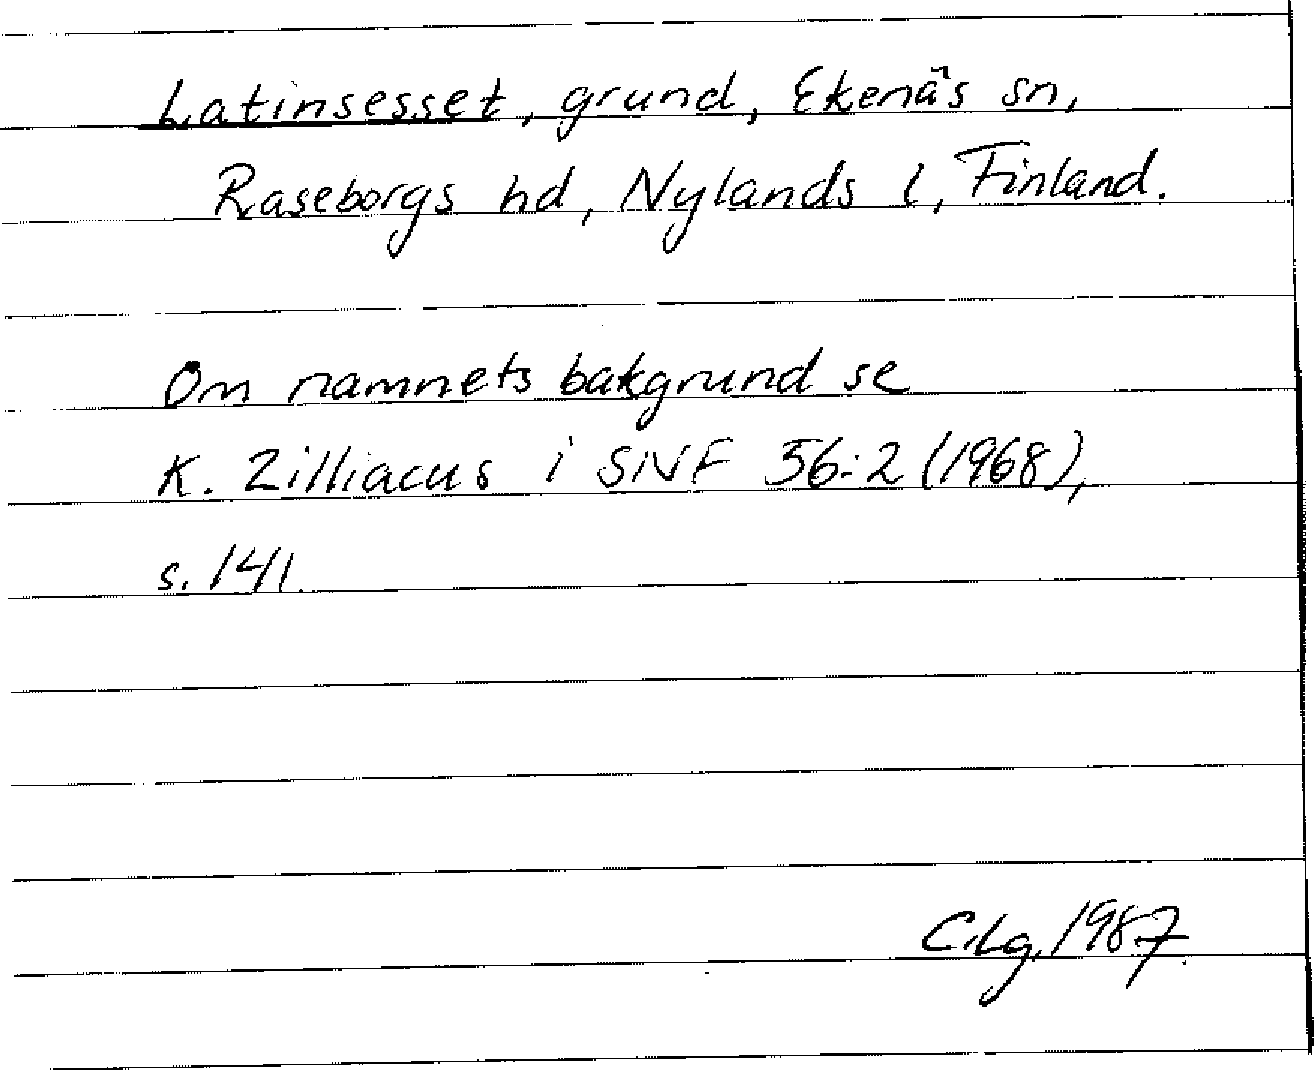 Latinsesset, grund, Ekenäs sn,
Raseborgs hd, Nylands l, Finland.
Om namnets bakgrund se
K. Zilliacus i SNF 56:2 (1968),
s. 141.
C.Lg. 1987.